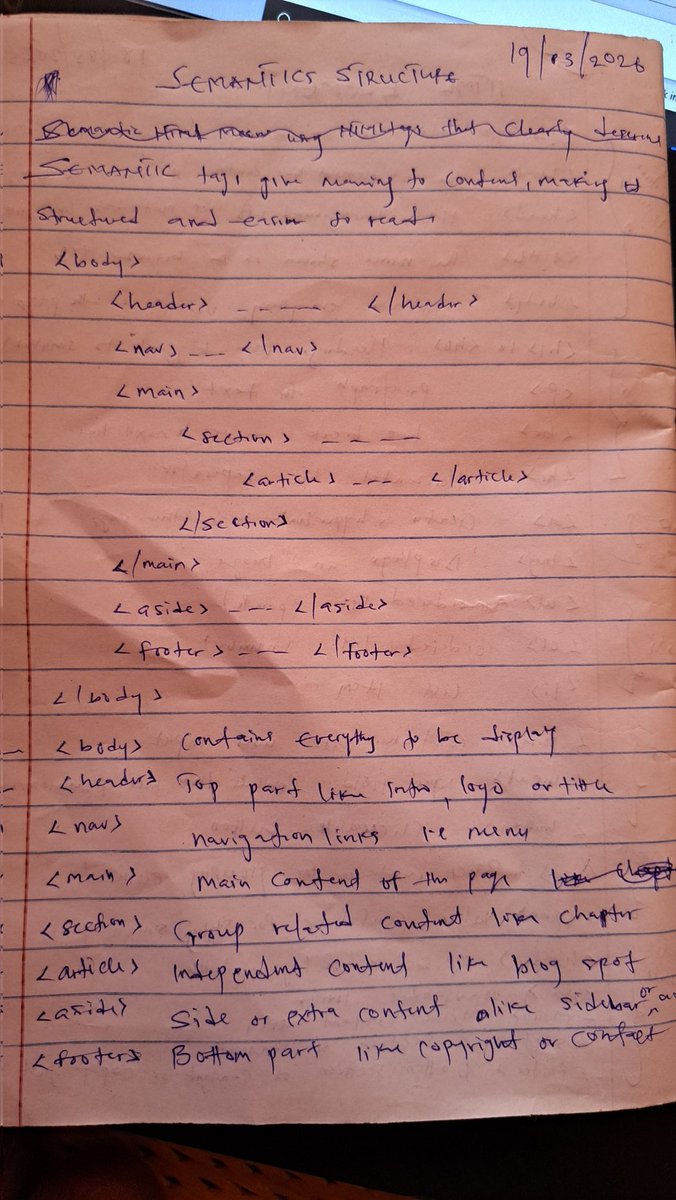 19/03/2026
SEMANTICS STRUCTURE
Semantic HTML means using HTML tags that clearly
SEMANTIC tags give meaning to content, making it
structured and easier to read.
<body>
<header> ----- </header>
<nav> --- </nav>
<main>
<section> ----
<article> --- </article>
</section>
</main>
<aside> --- </aside>
<footer> --- </footer>
</body>
<body> Contains everythg to be display
<header> Top part like intro, logo or title
<nav> navigation links i.e menu
<main> main contend of the page
<section> Group related content like chapter
<article> Independent content like blog spot
<aside> Side or extra content alike sidebar or
<footer> Bottom part like copyright or contact